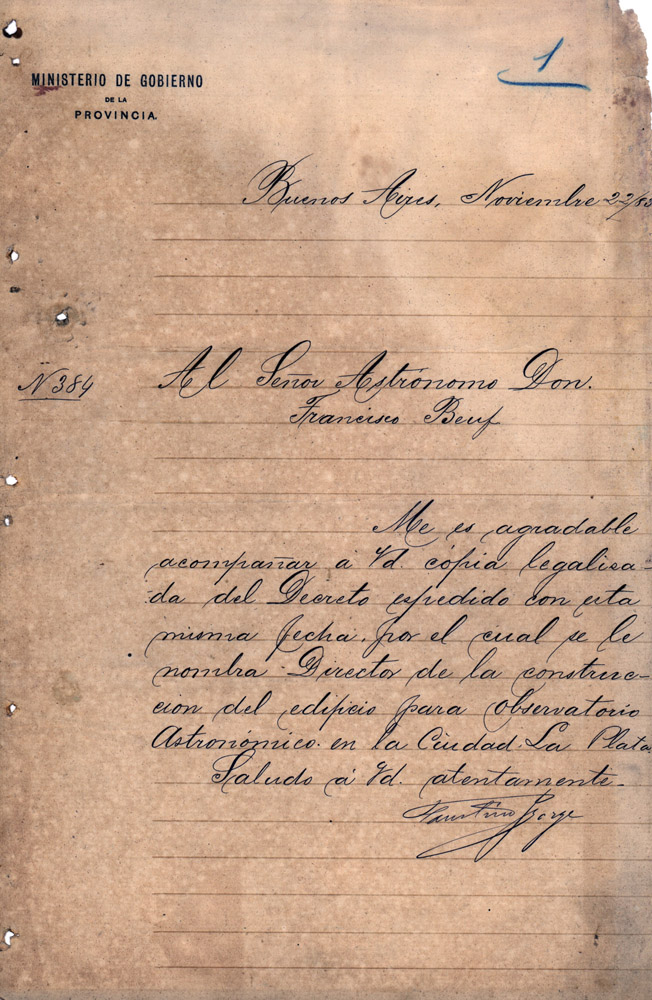 1
MINISTERIO DE GOBIERNO
DE LA
PROVINCIA.
Buenos Aires, Noviembre 22/83
N 384
Al Señor Astrónomo Don.
Francisco Beuf
Me es agradable
acompañar á Vd. cópia legalisa-
da del Decreto espedido con esta
misma fecha, por el cual se le
nombra Director de la construc-
cion del edificio para Observatorio
Astronómico en la Ciudad La Plata.
Saludo á Vd. atentamente.
Faustino Jorge